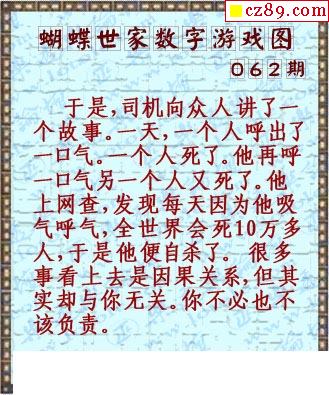 cz89.com
蝴蝶世家数字游戏图
062期
于是,司机向众人讲了一
个故事。一天,一个人呼出了
一口气。一个人死了。他再呼
一口气另一个人又死了。他
上网查,发现每天因为他吸
气呼气,全世界会死10万多
人,于是他便自杀了。 很多
事看上去是因果关系,但其
实却与你无关。你不必也不
该负责。